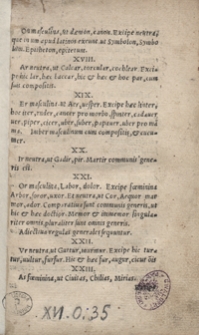 On masculina, ut dæmon, canon. Excipe neutra,
quæ in um apud Latinos exeunt ut Symbolon, Symbo
lum. Epitheton, epitetum.
XVIII.
Ar neutra, ut Calcar, torcular, cochlear. Exci
pe hic lar, hæc Lascar, hic & hæc & hoc par, cum
suis compositis.
XIX.
Er masculina, ut Aer, vesper. Excipe hæc linter,
hoc iter, tuber, pro morbo, spinter, cadauer
uer, piper, cicer, uber, laber, papauer, uber pro ma
mis. Imber masculinum cum compositis, & cucu-
mer.
XX.
Ir neutra, ut Gadir, pir. Martir communis gene
ris est.
XXI.
Or masculina, Labor, dolor. Excipe fœminina
Arbor, soror, uxor. Et neutra, ut Cor, Aequor mar
mor, ador. Comparatiua sunt communis generis, ut
hic & hæc doctior. Memor & immemor singula-
riter omnis, pluraliter duos omnis generis.
Adiectiua regulas generales sequuntur.
XXII.
Vr neutra, ut Guttur, murmur. Excipe hic tur
tur, uultur, furfur. Hic & hæc fur, augur, cicur
XXIII.
As fœminina, ut Ciuitas, Chilias, Mirias
XVI.O.35